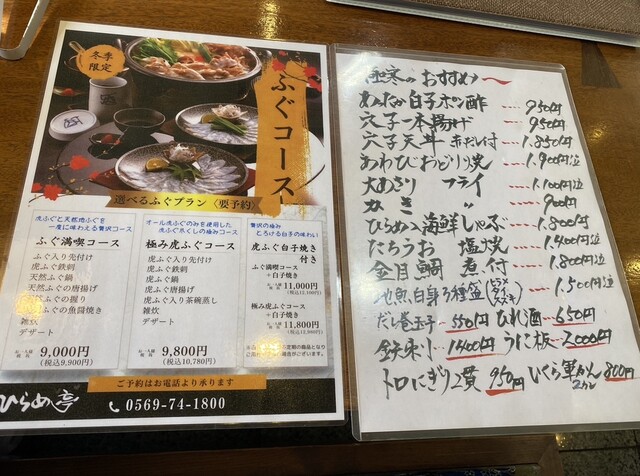 冬季
限定
ふぐコース
選べるふぐプラン〈要予約〉
虎ふぐと天然肉ふぐを
一度に味わえる贅沢コース
ふぐ満喫コース
ふぐ入り先付け
虎ふぐ鉄刺
天然ふぐ鍋
天然ふぐの唐揚げ
ふぐの握り
ふぐの魚醤焼き
雑炊
デザート
お一人様
価格 9,000円
(税込9,900円)
オール虎ふぐのみを使用した
虎ふぐ尽くしの極みコース
極み虎ふぐコース
ふぐ入り先付け
虎ふぐ鉄刺
虎ふぐ鍋
虎ふぐ唐揚げ
虎ふぐ入り茶碗蒸し
雑炊
デザート
お一人様
価格 9,800円
(税込10,780円)
贅沢の極み
とろける白子の味わい
虎ふぐ白子焼き
付き
ふぐ満喫コース
+白子焼き
お一人様
価格 11,000円
(税込12,100円)
極み虎ふぐコース
+白子焼き
お一人様
価格 11,800円
(税込12,980円)
ご予約はお電話より承ります
ひらめ亭
0569-74-1800
極寒のおすすめ
あんこう白子ポン酢 950円
穴子一本揚げ 950円
穴子天丼 赤だし付 1.850円
あわびおどり焼 1.900円位
大あさりフライ 1.100円位
かき 〃 900円
ひらめ入海鮮しゃぶ 1.800円
たちうお 塩焼 1.400円位
金目鯛 煮付 1.800円位
地魚白身3種盛 1.500円位
だし巻玉子 550円 ひれ酒 650円
鉄刺 1400円 うに板 2,000円
トロにぎり2貫 950円 いくら軍かん 2カン 800円